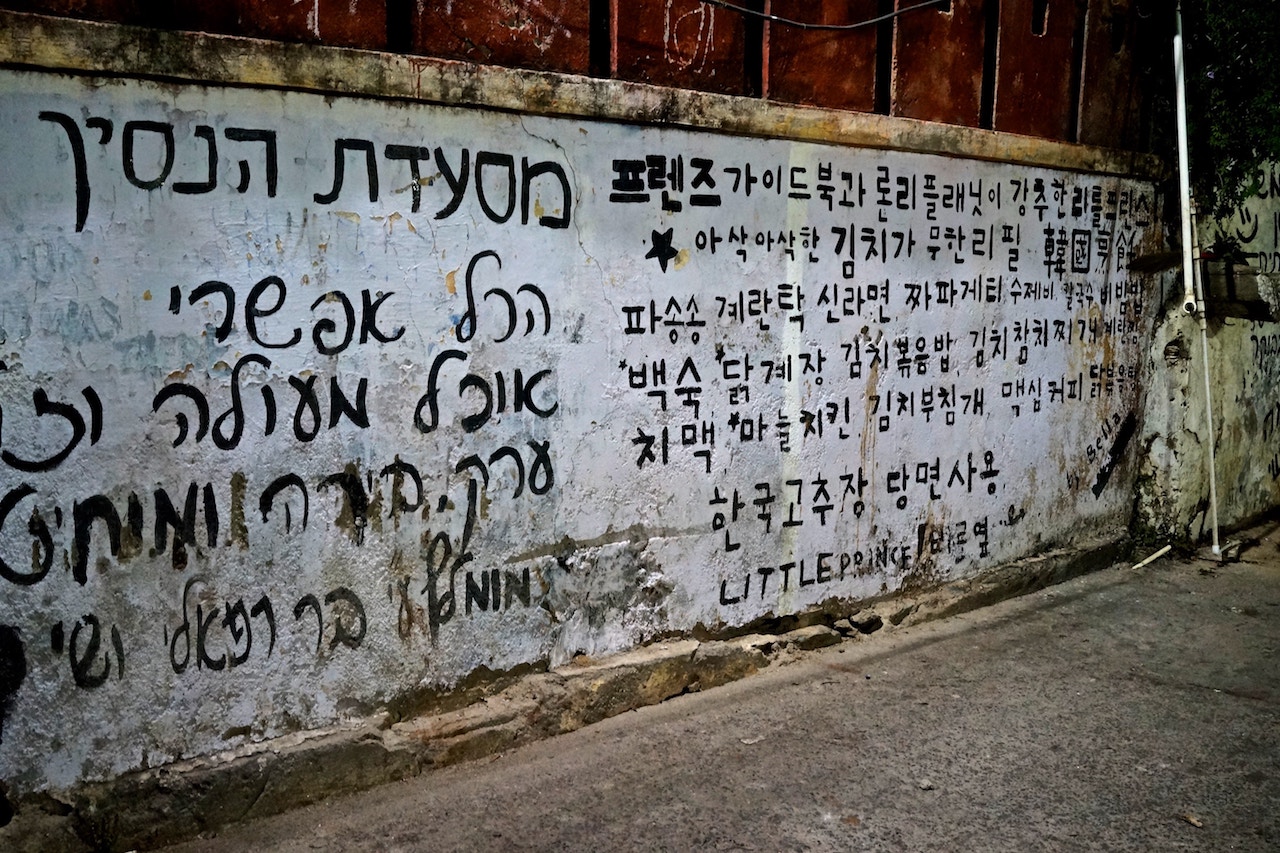 מסעדת הנסיך
הכל אפשרי
אוכל מעולה וזו
ערק, בירה ומוחיטו
מומלץ ע"י בר רפאלי ושי
프렌즈 가이드북과 론리플래닛이 강추한 리틀프린스
★ 아삭아삭한 김치가 무한리필 韓國食館
파송송 계란탁 신라면 짜파게티 수제비 칼국수 비빔밥
*백숙 *닭계장 김치볶음밥 김치참치찌개 계란찜
치맥 *마늘치킨 김치부침개 맥심커피 닭볶음탕
한국고추장 당면사용
LITTLE PRINCE 바로옆
by Bella